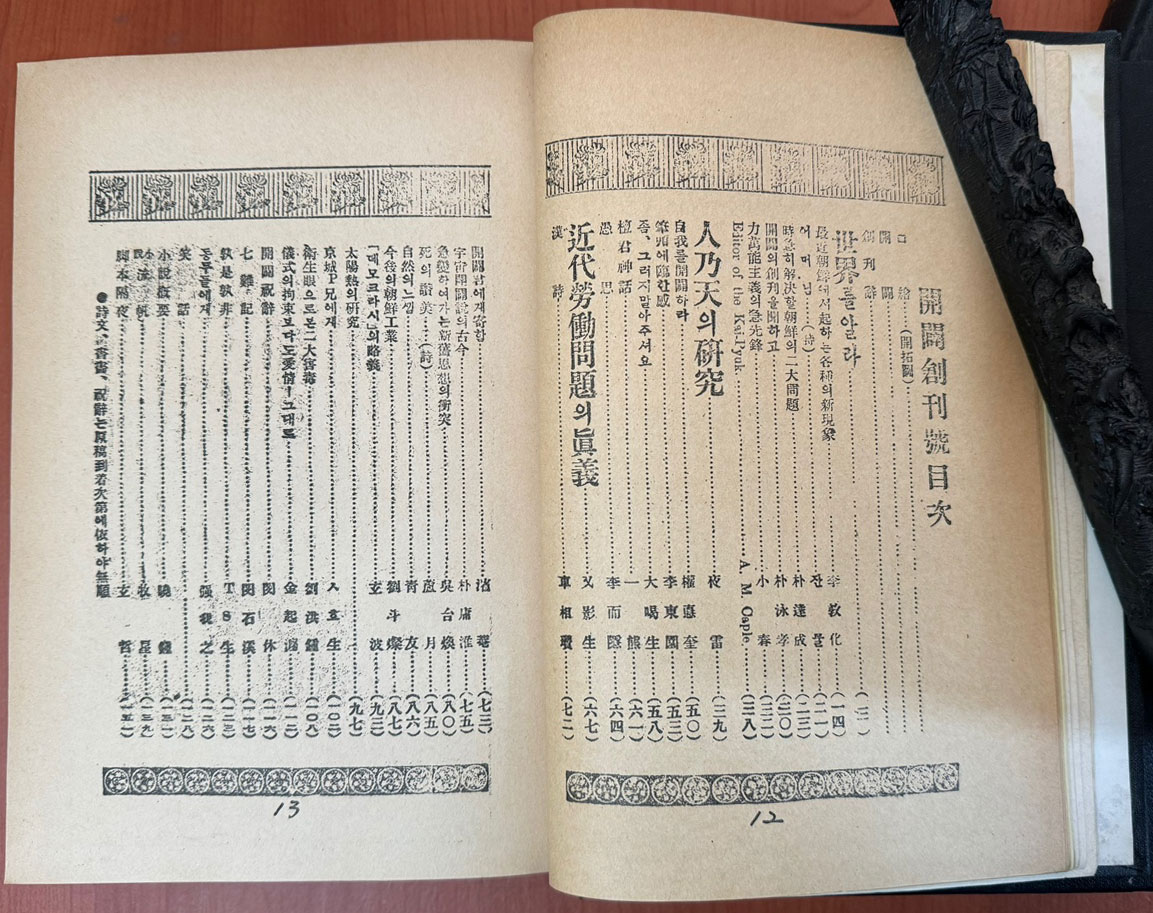 開闢創刊號目次
口繪(開拓圖)
開闢
創刊辭……(二)
世界를알라
最近朝鮮에서起하는各種의新現象……李敦化……(一四)
어머님……(詩)……잔물……(二一)
時急히解決할朝鮮의二大問題……朴達成……(二三)
開闢의創刊을聞하고……朴泳孝……(三〇)
力萬能主義의急先鋒……小春……(三二)
Editor of the Kai-Pyuk……A. M. Caple……(三八)
人乃天의硏究……夜雷……(三九)
自我를開闢하라……權悳奎……(五〇)
第四에臨한感……李東園……(五三)
좀、그러지말아주셔요……大喝生……(五八)
檀君神話……一熊……(六一)
愚思……李而隱……(六四)
近代勞働問題의眞義……又影生……(六七)
漢詩……車相瓚……(七二)
開闢君에게寄함……滄菴……(七三)
宇宙開闢說의古今……朴庸淮……(七五)
急變하여가는新舊思想의衝突……吳台煥……(八〇)
死의讃美……(詩)……蘆月……(八五)
自然의느낌……靑友……(八六)
今後의朝鮮工業……劉斗燦……(八七)
「데모크라시」의略義……玄波……(九三)
太陽熱의硏究……(九七)
京城P兄에게……ㅅㅎ生……(一〇二)
衛生眼으로본二大害毒……劉洪鍾……(一〇八)
儀式의拘束보다도愛情ㅡ그대로……金起瀍……(一一二)
開闢祝辭……閔休……(一一六)
七難記……閔石溪……(一一七)
孰是孰非……TS生……(一二三)
동무들에게……强我之……(一二六)
笑話……(一二八)
小說槪要……曉鍾……(一三一)
小說 流帆……牧星……(一三九)
脚本 陽夜……玄哲……(一五二)
●詩文、書畵、祝辭는原稿到着次第에依하야無順
13
12